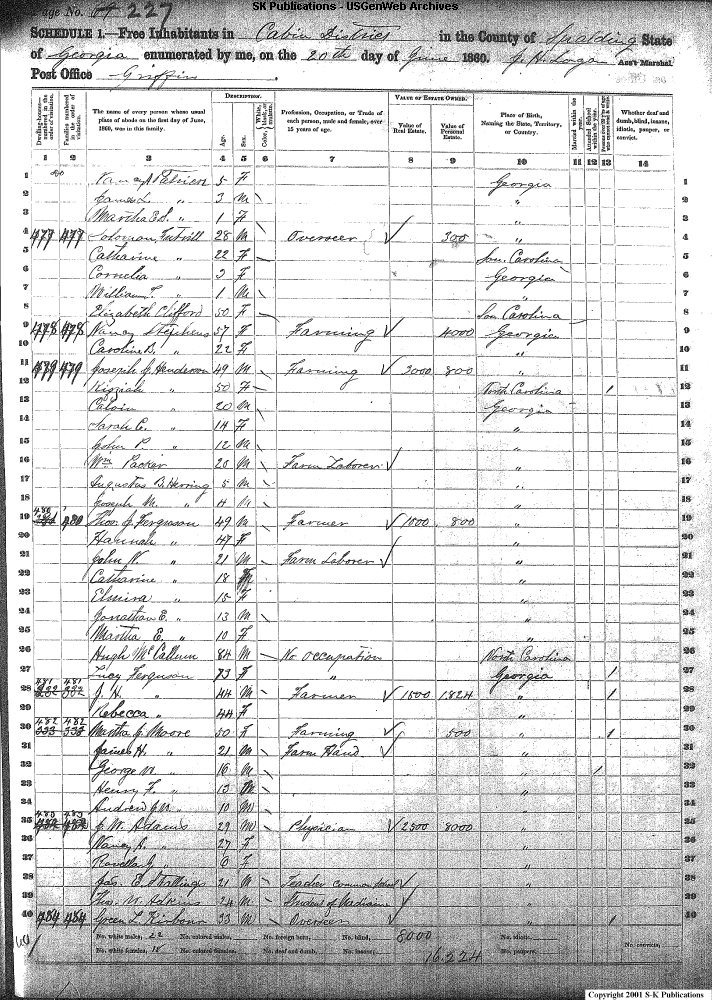 SK Publications - USGenWeb Archives
Page No. 227
SCHEDULE 1.—Free Inhabitants in Cabin District in the County of Spalding State
of Georgia enumerated by me, on the 20th day of June 1860. J. H. Logan Ass't Marshal
Post Office Griffin
DESCRIPTION. VALUE OF ESTATE OWNED.
Dwelling-houses—numbered in the order of visitation. Families numbered in the order of visitation. The name of every person whose usual place of abode on the first day of June, 1860, was in this family. Age. Sex. Color, Profession, Occupation, or Trade of each person, male and female, over 15 years of age. Value of Real Estate. Value of Personal Estate. Place of Birth, Naming the State, Territory, or Country. Married within the year. Attended School within the year. Whether deaf and dumb, blind, insane, idiotic, pauper, or convict.
1 2 3 4 5 6 7 8 9 10 11 12 13 14
1 Nancy Patrick 5 F Georgia 1
2 James L. " 3 M " 2
3 Martha " 1 F " 3
4 477 477 Solomon 28 M Overseer 300 " 4
5 Catharine " 22 F Sou. Carolina 5
6 Cornelia " F Georgia 6
7 William " 1 M " 7
8 Elizabeth Clifford 50 F Sou Carolina 8
9 478 478 Nancy Stephens 57 F Farming 4000 Georgia 9
10 Caroline " 22 F " 10
11 479 479 Joseph J. Henderson 49 M Farming 3000 800 " 11
12 Kisziah " 50 F North Carolina / 12
13 Calvin " 20 M Georgia 13
14 Sarah C. " 14 F " 14
15 John P. " 12 M " 15
16 Wm Parker 20 M Farm Laborer " 16
17 Augustus B. Herring 5 M " 17
18 Joseph M. " 4 M " 18
19 480 480 Thos. J. Ferguson 49 M Farmer 1000 800 " 19
20 Hannah " 47 F " 20
21 John W. " 21 M Farm Laborer " 21
22 Catharine " 18 " 22
23 Elmina " 15 F " 23
24 Jonathan E. " 13 M " 24
25 Martha E. " 10 F " 25
26 Hugh McCallum 84 M No occupation North Carolina 26
27 Lucy Ferguson 73 F " Georgia / 27
28 481 481 J. H. " 44 M Farmer 1500 1824 " / 28
29 Rebecca " 44 F " 29
30 482 482 Martha J. Moore 50 F Farming 500 " / 30
31 James H. " 21 M Farm Hand " 31
32 George W. " 16 M " / 32
33 Henry F. " 13 M " 33
34 Andrew " 10 M " 34
35 483 483 J. W. Adams 29 M Physician 2500 8000 " 35
36 Nancy A. " 27 F " 36
37 " F " 37
38 Jas. E. Stallings 21 M Teacher common school " 38
39 Thos. M. Adkins 24 M Student of Medicine " 39
40 484 484 Green L. 33 M Overseer " 40
No. white males, 22 No. colored males, No. foreign born, No. blind, 8000 No. idiotic,
No. white females, 18 No. colored females, No. deaf and dumb, No. insane, 16.224 No. paupers, No. convicts,
Copyright 2001 S-K Publications